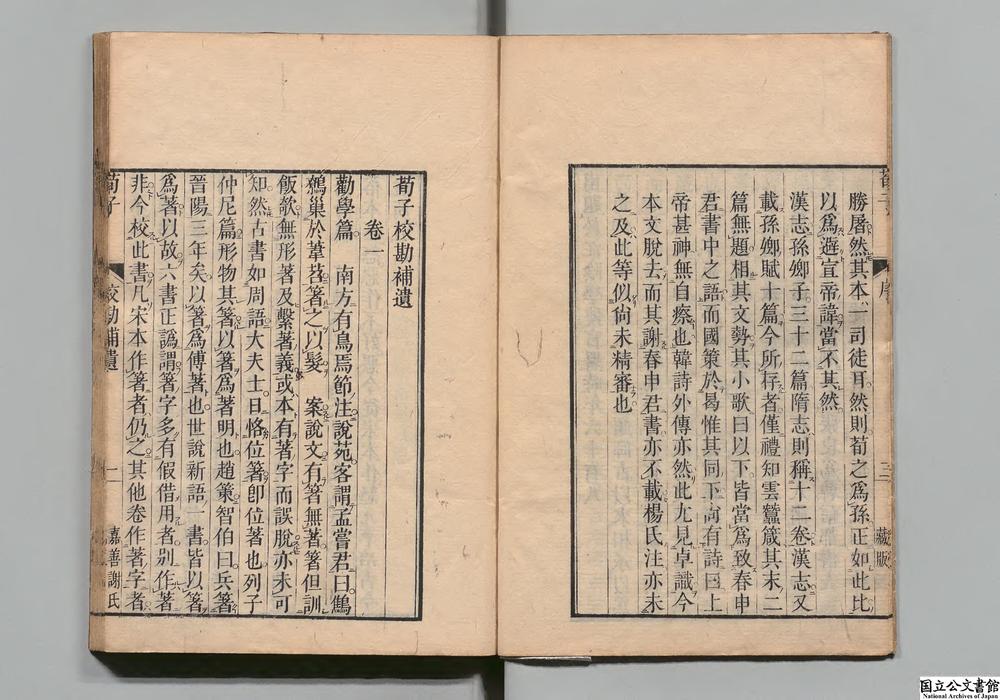 勝屠然其本一司徒耳然則荀之爲孫正如此比
以爲避宣帝諱當不其然
漢志孫卿子三十二篇隋志則稱十二卷漢志又
載孫卿賦十篇今所存者僅禮知雲蠶箴其末二
篇無題相其文勢其小歌曰以下皆當爲致春申
君書中之語而國策於曷惟其同下尚有詩曰上
帝甚神無自瘵也韓詩外傳亦然此尤見卓識今
本文脫去而其謝春申君書亦不載楊氏注亦未
之及此等似尙未精審也
序
三
藏版
荀子校勘補遺
卷一
勸學篇 南方有鳥焉節注說苑客謂孟嘗君曰鷦
鷯巢於葦苕箸之以髮 案說文有箸無著箸但訓
飯㩻無形著及繫著義或本有著字而誤脫亦未可
知然古書如周語大夫士日恪位箸卽位著也列子
仲尼篇形物其箸以箸爲著明也趙策智伯曰兵箸
晉陽三年矣以箸爲傅著也世說新語一書皆以箸
爲著以故六書正譌謂箸字多有假借用者别作著
非今校此書凡宋本作箸者仍之其他卷作著字者
荀子
校勘補遺
一
嘉善謝氏
国立公文書館
National Archives of Japan